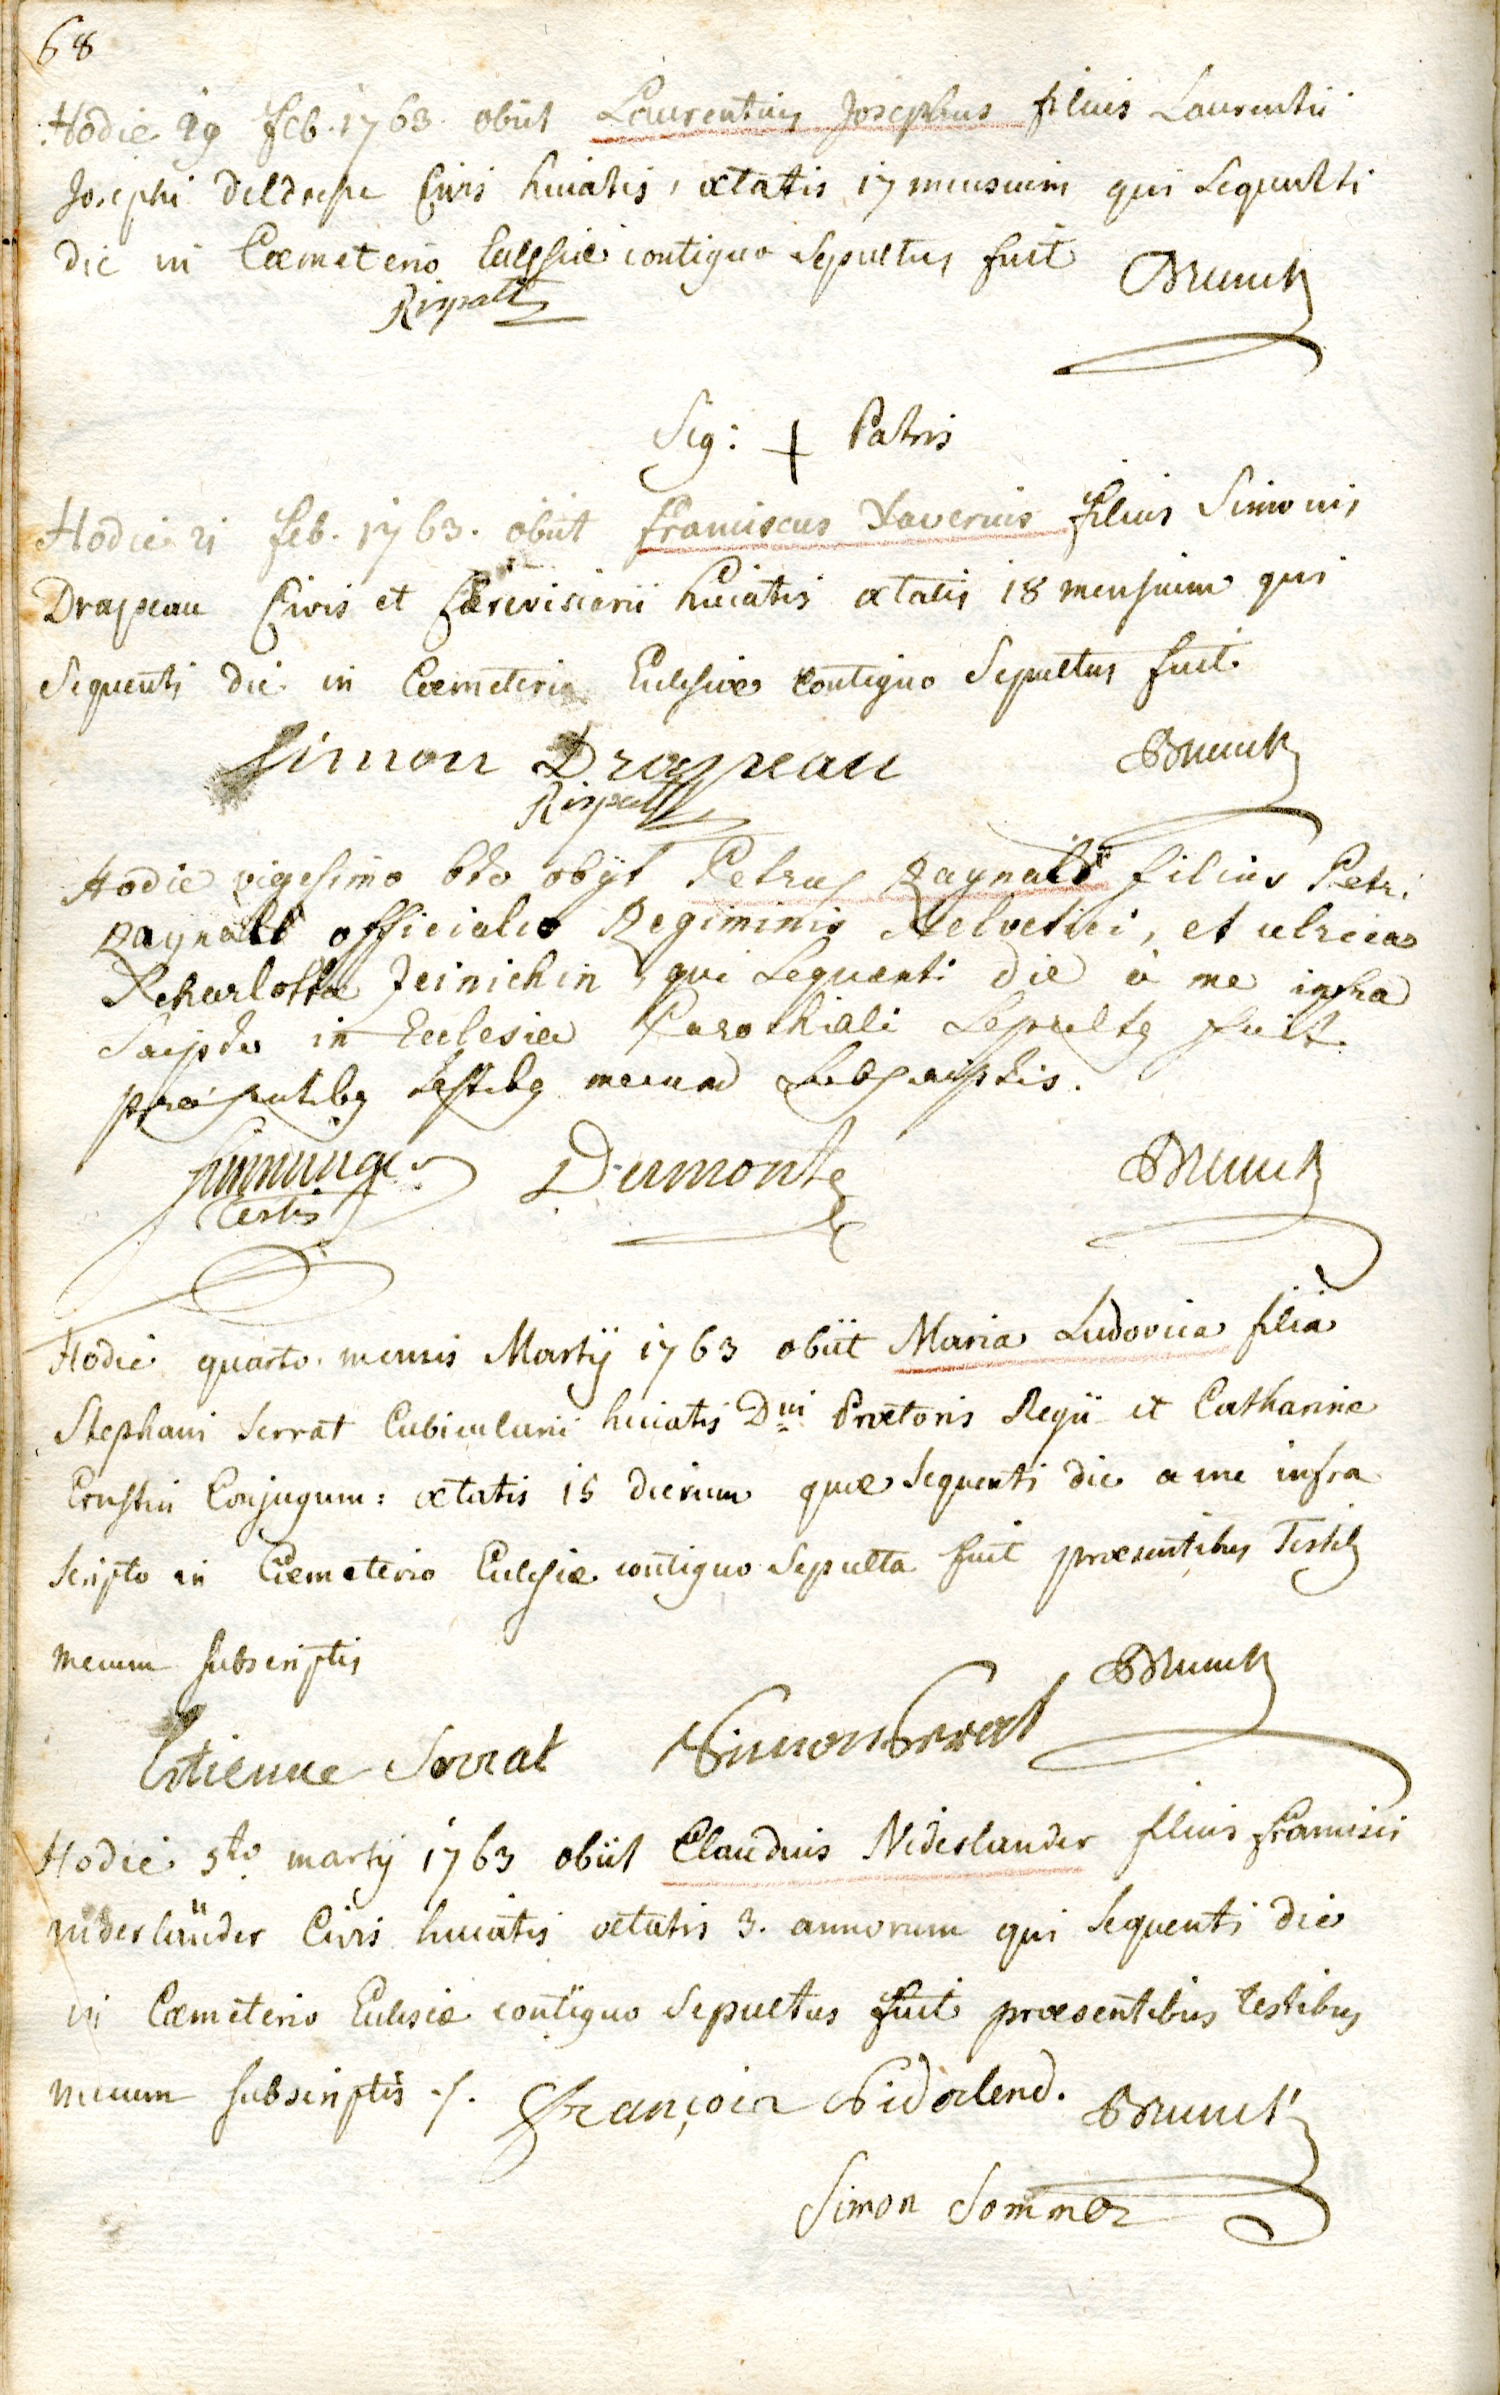 68
Hodie 19 feb. 1763 obiit Laurentius Josephus filius Laurentii
Josephi civis huiatis, ætatis 17 mensium qui sequenti
die in Cœmeterio Ecclesiæ contiguo sepultus fuit Brunck
Rispalt
Sig: + Patris
Hodie 21 feb. 1763. obiit franciscus Xaverius filius Simonis
Drapeau Civis et Cerevisiarii huiatis ætatis 18 mensium qui
sequenti die in Cœmeterio Ecclesiæ contiguo sepultus fuit
Simon Drapeau Brunck
Rispalt
Hodie vigesimo 6to obijt Petrus Raynald filius Petri
Raynald officialis Regiminis Helvetici, et ulricæ
Scharlotta Jeinichin, qui sequenti die à me infra
scripto in Ecclesia Parochiali sepultq fuit
præsentibq testibq mecum subscriptis.
Dumonte Brunck
testis
Hodie quarto mensis Martij 1763 obiit Maria Ludovica filia
Stephani Serrat Cubicularii huiatis Dni Prætoris Regii et Catharinæ
Ernstin Conjugum: ætatis 15 dierum quæ sequenti die a me infra
scripto in Cœmeterio Ecclesiæ contiguo sepulta fuit præsentibus Testib
mecum subscriptis Brunck
Etienne Serrat Simon Serrat
Hodie 5to martij 1763 obiit Claudius Niderlander filius francisci
niderländer Civis huiatis ætatis 3. annorum qui sequenti die
in Cœmeterio Ecclesiæ contiguo sepultus fuit præsentibus testibus
mecum subscriptis ./. François Niderlend. Brunck
Simon Sommer